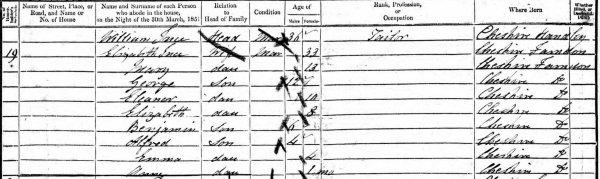 Name of Street, Place, or Road, and Name or No. of House
Name and Surname of each Person who abode in the house, on the Night of the 30th March, 1851
Relation to Head of Family
Condition
Age of
Males
Females
Rank, Profession, or Occupation
Where Born
William Head Mar 36 Tailor Cheshire
19 Elizabeth Mar 33 Cheshire Farndon
Mary dau 13 Cheshire Farndon
George Son Cheshire Do
Eleanor dau 10 Cheshire Do
Elizabeth dau 8 Cheshire Do
Benjamin Son Cheshire Do
Alfred Son 4 Cheshire Do
Emma dau Cheshire Do
dau 1 mo Cheshire Do